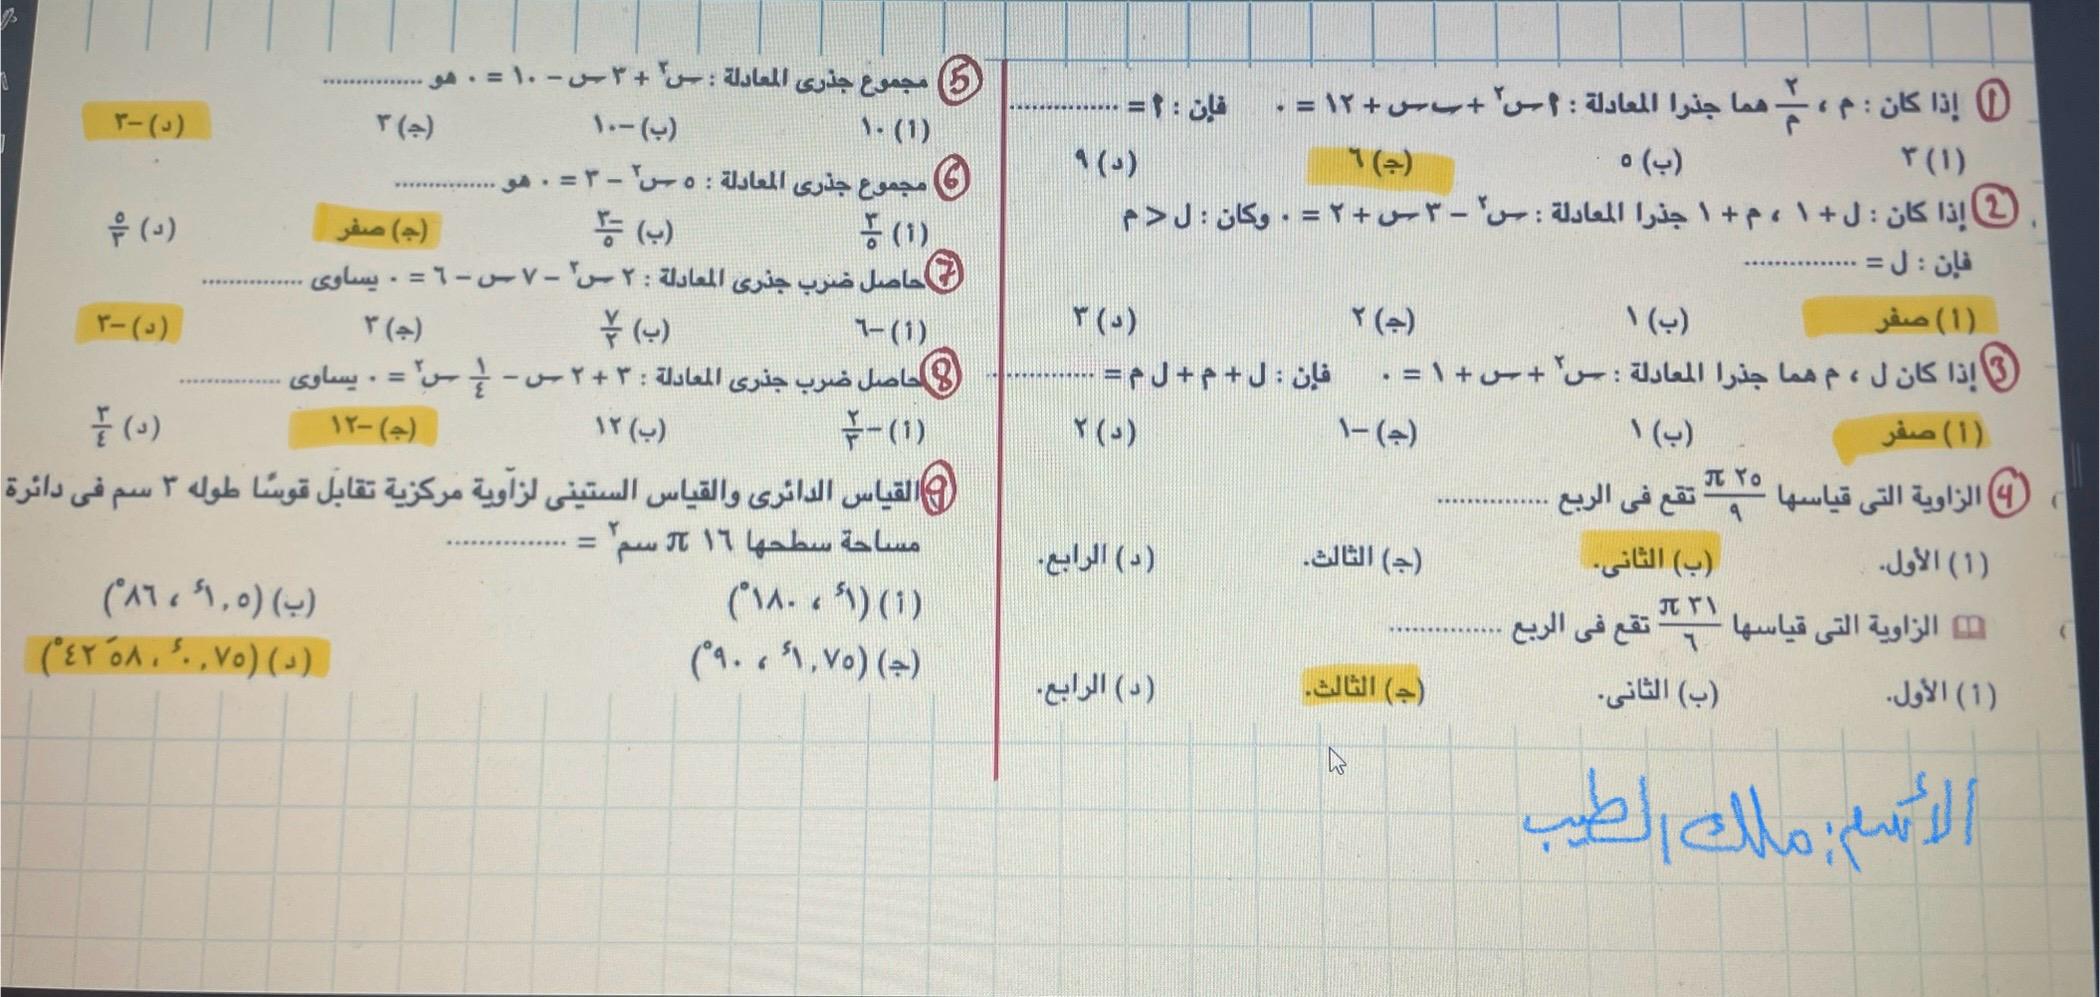 ① إذا كان : م ، ٢/م هما جذرا المعادلة : ٢ س٢ + ب س + ١٢ = ٠ فإن : ٢ = ..............
(أ) ٣ (ب) ٥ (ج) ٦ (د) ٩
② إذا كان : ل + ١ ، م + ١ جذرا المعادلة : س٢ – ٣ س + ٢ = ٠ وكان : ل < م
فإن : ل = ..............
(أ) صفر (ب) ١ (ج) ٢ (د) ٣
③ إذا كان ل ، م هما جذرا المعادلة : س٢ + س + ١ = ٠ فإن : ل + م + ل م = ..............
(أ) صفر (ب) ١ (ج) –١ (د) ٢
④ الزاوية التى قياسها ٢٥ π/٩ تقع فى الربع ..............
(أ) الأول. (ب) الثانى. (ج) الثالث. (د) الرابع.
الزاوية التى قياسها ٣١ π/٦ تقع فى الربع ..............
(أ) الأول. (ب) الثانى. (ج) الثالث. (د) الرابع.
الأسم: ملك الطيب
⑤ مجموع جذرى المعادلة : س٢ + ٣ س – ١٠ = ٠ هو ..............
(أ) ١٠ (ب) –١٠ (ج) ٣ (د) –٣
⑥ مجموع جذرى المعادلة : ٥ س٢ – ٣ = ٠ هو ..............
(أ) ٣/٥ (ب) –٣/٥ (ج) صفر (د) ٥/٣
⑦ حاصل ضرب جذرى المعادلة : ٢ س٢ – ٧ س – ٦ = ٠ يساوى ..............
(أ) –٦ (ب) ٧/٢ (ج) ٣ (د) –٣
⑧ حاصل ضرب جذرى المعادلة : ٣ + ٢ س – ١/٤ س٢ = ٠ يساوى ..............
(أ) –٢/٣ (ب) ١٢ (ج) –١٢ (د) ٣/٤
⑨ القياس الدائرى والقياس الستينى لزاوية مركزية تقابل قوسًا طوله ٣ سم فى دائرة
مساحة سطحها ١٦ π سم٢ = ..............
(أ) (١ء ، ١٨٠°) (ب) (١,٥ء ، ٨٦°)
(ج) (١,٧٥ء ، ٩٠°) (د) (٠,٧٥ء ، ٥٨َ ٤٢°)